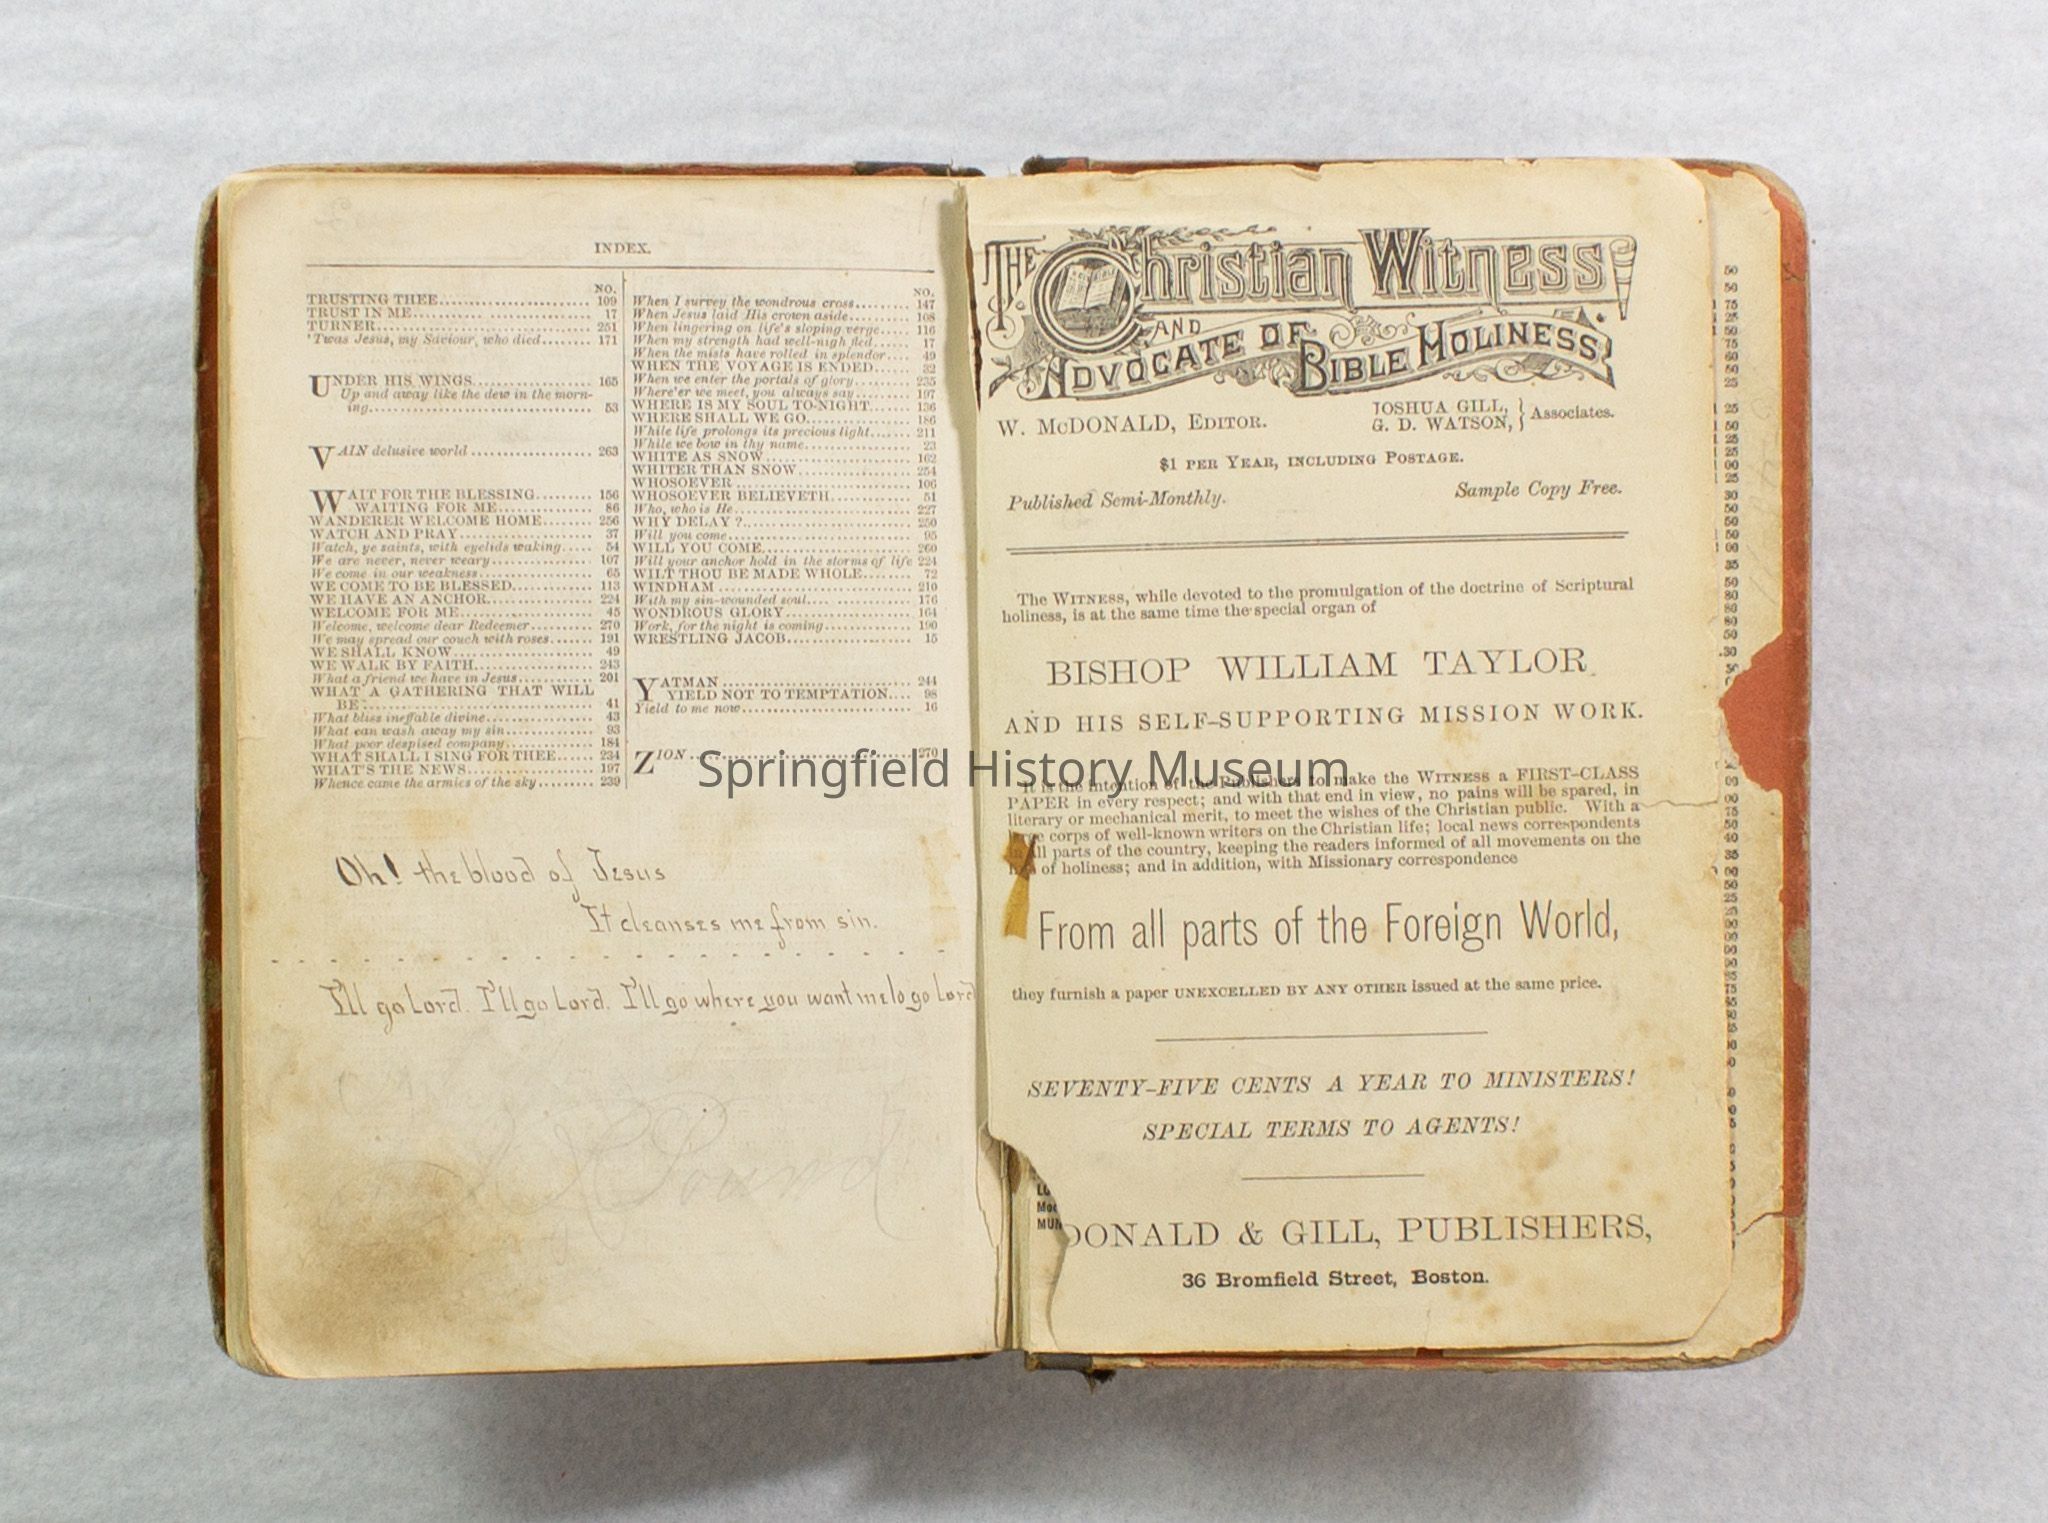 INDEX.
NO.
TRUSTING THEE 109
TRUST IN ME 17
TURNER 251
'Twas Jesus, my Saviour, who died 171
UNDER HIS WINGS 165
Up and away like the dew in the morn-
ing 53
VAIN delusive world 263
WAIT FOR THE BLESSING 156
WAITING FOR ME 86
WANDERER WELCOME HOME 256
WATCH AND PRAY 37
Watch, ye saints, with eyelids waking 54
We are never, never weary 107
We come in our weakness 65
WE COME TO BE BLESSED 113
WE HAVE AN ANCHOR 224
WELCOME FOR ME 45
Welcome, welcome dear Redeemer 270
We may spread our couch with roses 191
WE SHALL KNOW 49
WE WALK BY FAITH 243
What a friend we have in Jesus 201
WHAT A GATHERING THAT WILL
BE 41
What bliss ineffable divine 43
What can wash away my sin 93
What poor despised company 184
WHAT SHALL I SING FOR THEE 234
WHAT'S THE NEWS 197
Whence came the armies of the sky 239
NO.
When I survey the wondrous cross 147
When Jesus laid His crown aside 108
When lingering on life's sloping verge 116
When my strength had well-nigh fled 17
When the mists have rolled in splendor 49
WHEN THE VOYAGE IS ENDED 32
When we enter the portals of glory 235
Where'er we meet, you always say 197
WHERE IS MY SOUL TO-NIGHT 136
WHERE SHALL WE GO 186
While life prolongs its precious light 211
While we bow in thy name 23
WHITE AS SNOW 162
WHITER THAN SNOW 254
WHOSOEVER 106
WHOSOEVER BELIEVETH 51
Who, who is He 227
WHY DELAY ? 250
Will you come 95
WILL YOU COME 260
Will your anchor hold in the storms of life 224
WILT THOU BE MADE WHOLE 72
WINDHAM 210
With my sin-wounded soul 176
WONDROUS GLORY 164
Work, for the night is coming 190
WRESTLING JACOB 15
YATMAN 244
YIELD NOT TO TEMPTATION 98
Yield to me now 16
ZION 270
Oh! the blood of Jesus
It cleanses me from sin.
I'll go Lord. I'll go Lord. I'll go where you want me to go Lord
THE Christian Witness
AND
ADVOCATE OF BIBLE HOLINESS.
W. McDONALD, EDITOR.
JOSHUA GILL,
G. D. WATSON, } Associates.
$1 PER YEAR, INCLUDING POSTAGE.
Published Semi-Monthly.
Sample Copy Free.
The WITNESS, while devoted to the promulgation of the doctrine of Scriptural
holiness, is at the same time the special organ of
BISHOP WILLIAM TAYLOR
AND HIS SELF-SUPPORTING MISSION WORK.
It is the intention of the Publishers to make the WITNESS a FIRST-CLASS
PAPER in every respect; and with that end in view, no pains will be spared, in
literary or mechanical merit, to meet the wishes of the Christian public. With a
large corps of well-known writers on the Christian life; local news correspondents
in all parts of the country, keeping the readers informed of all movements on the
of holiness; and in addition, with Missionary correspondence
From all parts of the Foreign World,
they furnish a paper UNEXCELLED BY ANY OTHER issued at the same price.
SEVENTY-FIVE CENTS A YEAR TO MINISTERS!
SPECIAL TERMS TO AGENTS!
DONALD & GILL, PUBLISHERS,
36 Bromfield Street, Boston.
Springfield History Museum